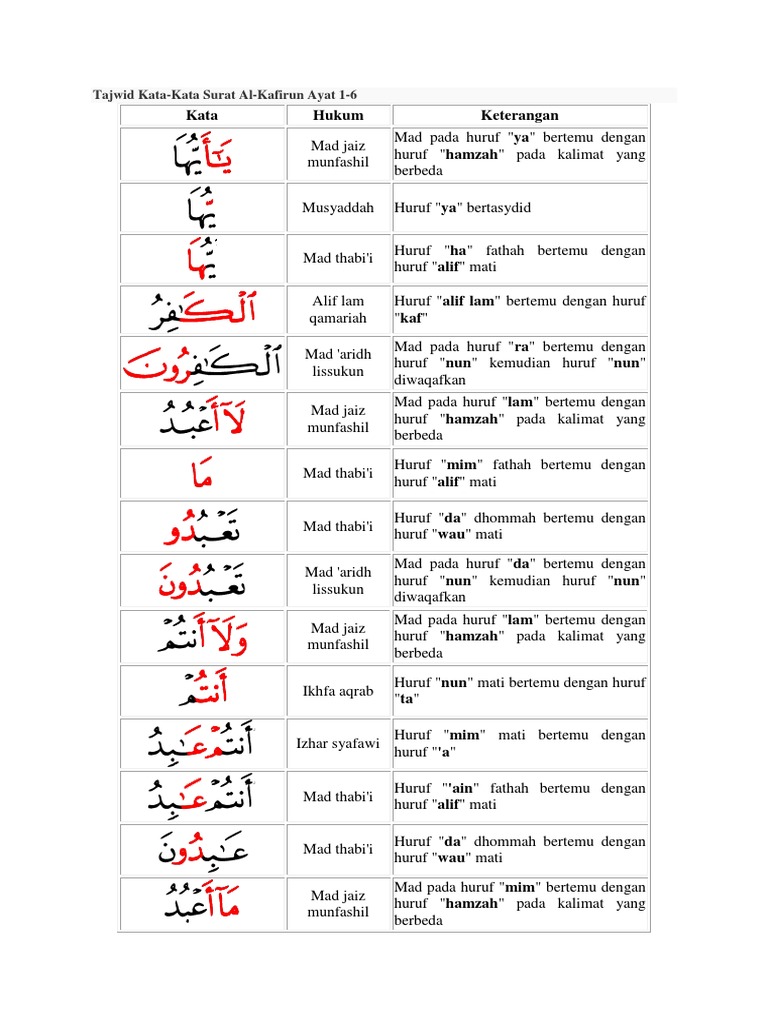 Tajwid Kata-Kata Surat Al-Kafirun Ayat 1-6
Kata Hukum Keterangan
يَٰٓأَيُّهَا
Mad jaiz
munfashil
Mad pada huruf "ya" bertemu dengan
huruf "hamzah" pada kalimat yang
berbeda
يُّهَا
Musyaddah
Huruf "ya" bertasydid
يُّهَا
Mad thabi'i
Huruf "ha" fathah bertemu dengan
huruf "alif" mati
ٱلْكَٰفِرُ
Alif lam
qamariah
Huruf "alif lam" bertemu dengan huruf
"kaf"
ٱلْكَٰفِرُونَ
Mad 'aridh
lissukun
Mad pada huruf "ra" bertemu dengan
huruf "nun" kemudian huruf "nun"
diwaqafkan
لَآ أَعْبُدُ
Mad jaiz
munfashil
Mad pada huruf "lam" bertemu dengan
huruf "hamzah" pada kalimat yang
berbeda
مَا
Mad thabi'i
Huruf "mim" fathah bertemu dengan
huruf "alif" mati
تَعْبُدُو
Mad thabi'i
Huruf "da" dhommah bertemu dengan
huruf "wau" mati
تَعْبُدُونَ
Mad 'aridh
lissukun
Mad pada huruf "da" bertemu dengan
huruf "nun" kemudian huruf "nun"
diwaqafkan
وَلَآ أَنتُمْ
Mad jaiz
munfashil
Mad pada huruf "lam" bertemu dengan
huruf "hamzah" pada kalimat yang
berbeda
أَنتُمْ
Ikhfa aqrab
Huruf "nun" mati bertemu dengan huruf
"ta"
أَنتُمْ عَٰبِدُ
Izhar syafawi
Huruf "mim" mati bertemu dengan
huruf "'a"
أَنتُمْ عَٰبِدُ
Mad thabi'i
Huruf "'ain" fathah bertemu dengan
huruf "alif" mati
عَٰبِدُونَ
Mad thabi'i
Huruf "da" dhommah bertemu dengan
huruf "wau" mati
مَآ أَعْبُدُ
Mad jaiz
munfashil
Mad pada huruf "mim" bertemu dengan
huruf "hamzah" pada kalimat yang
berbeda